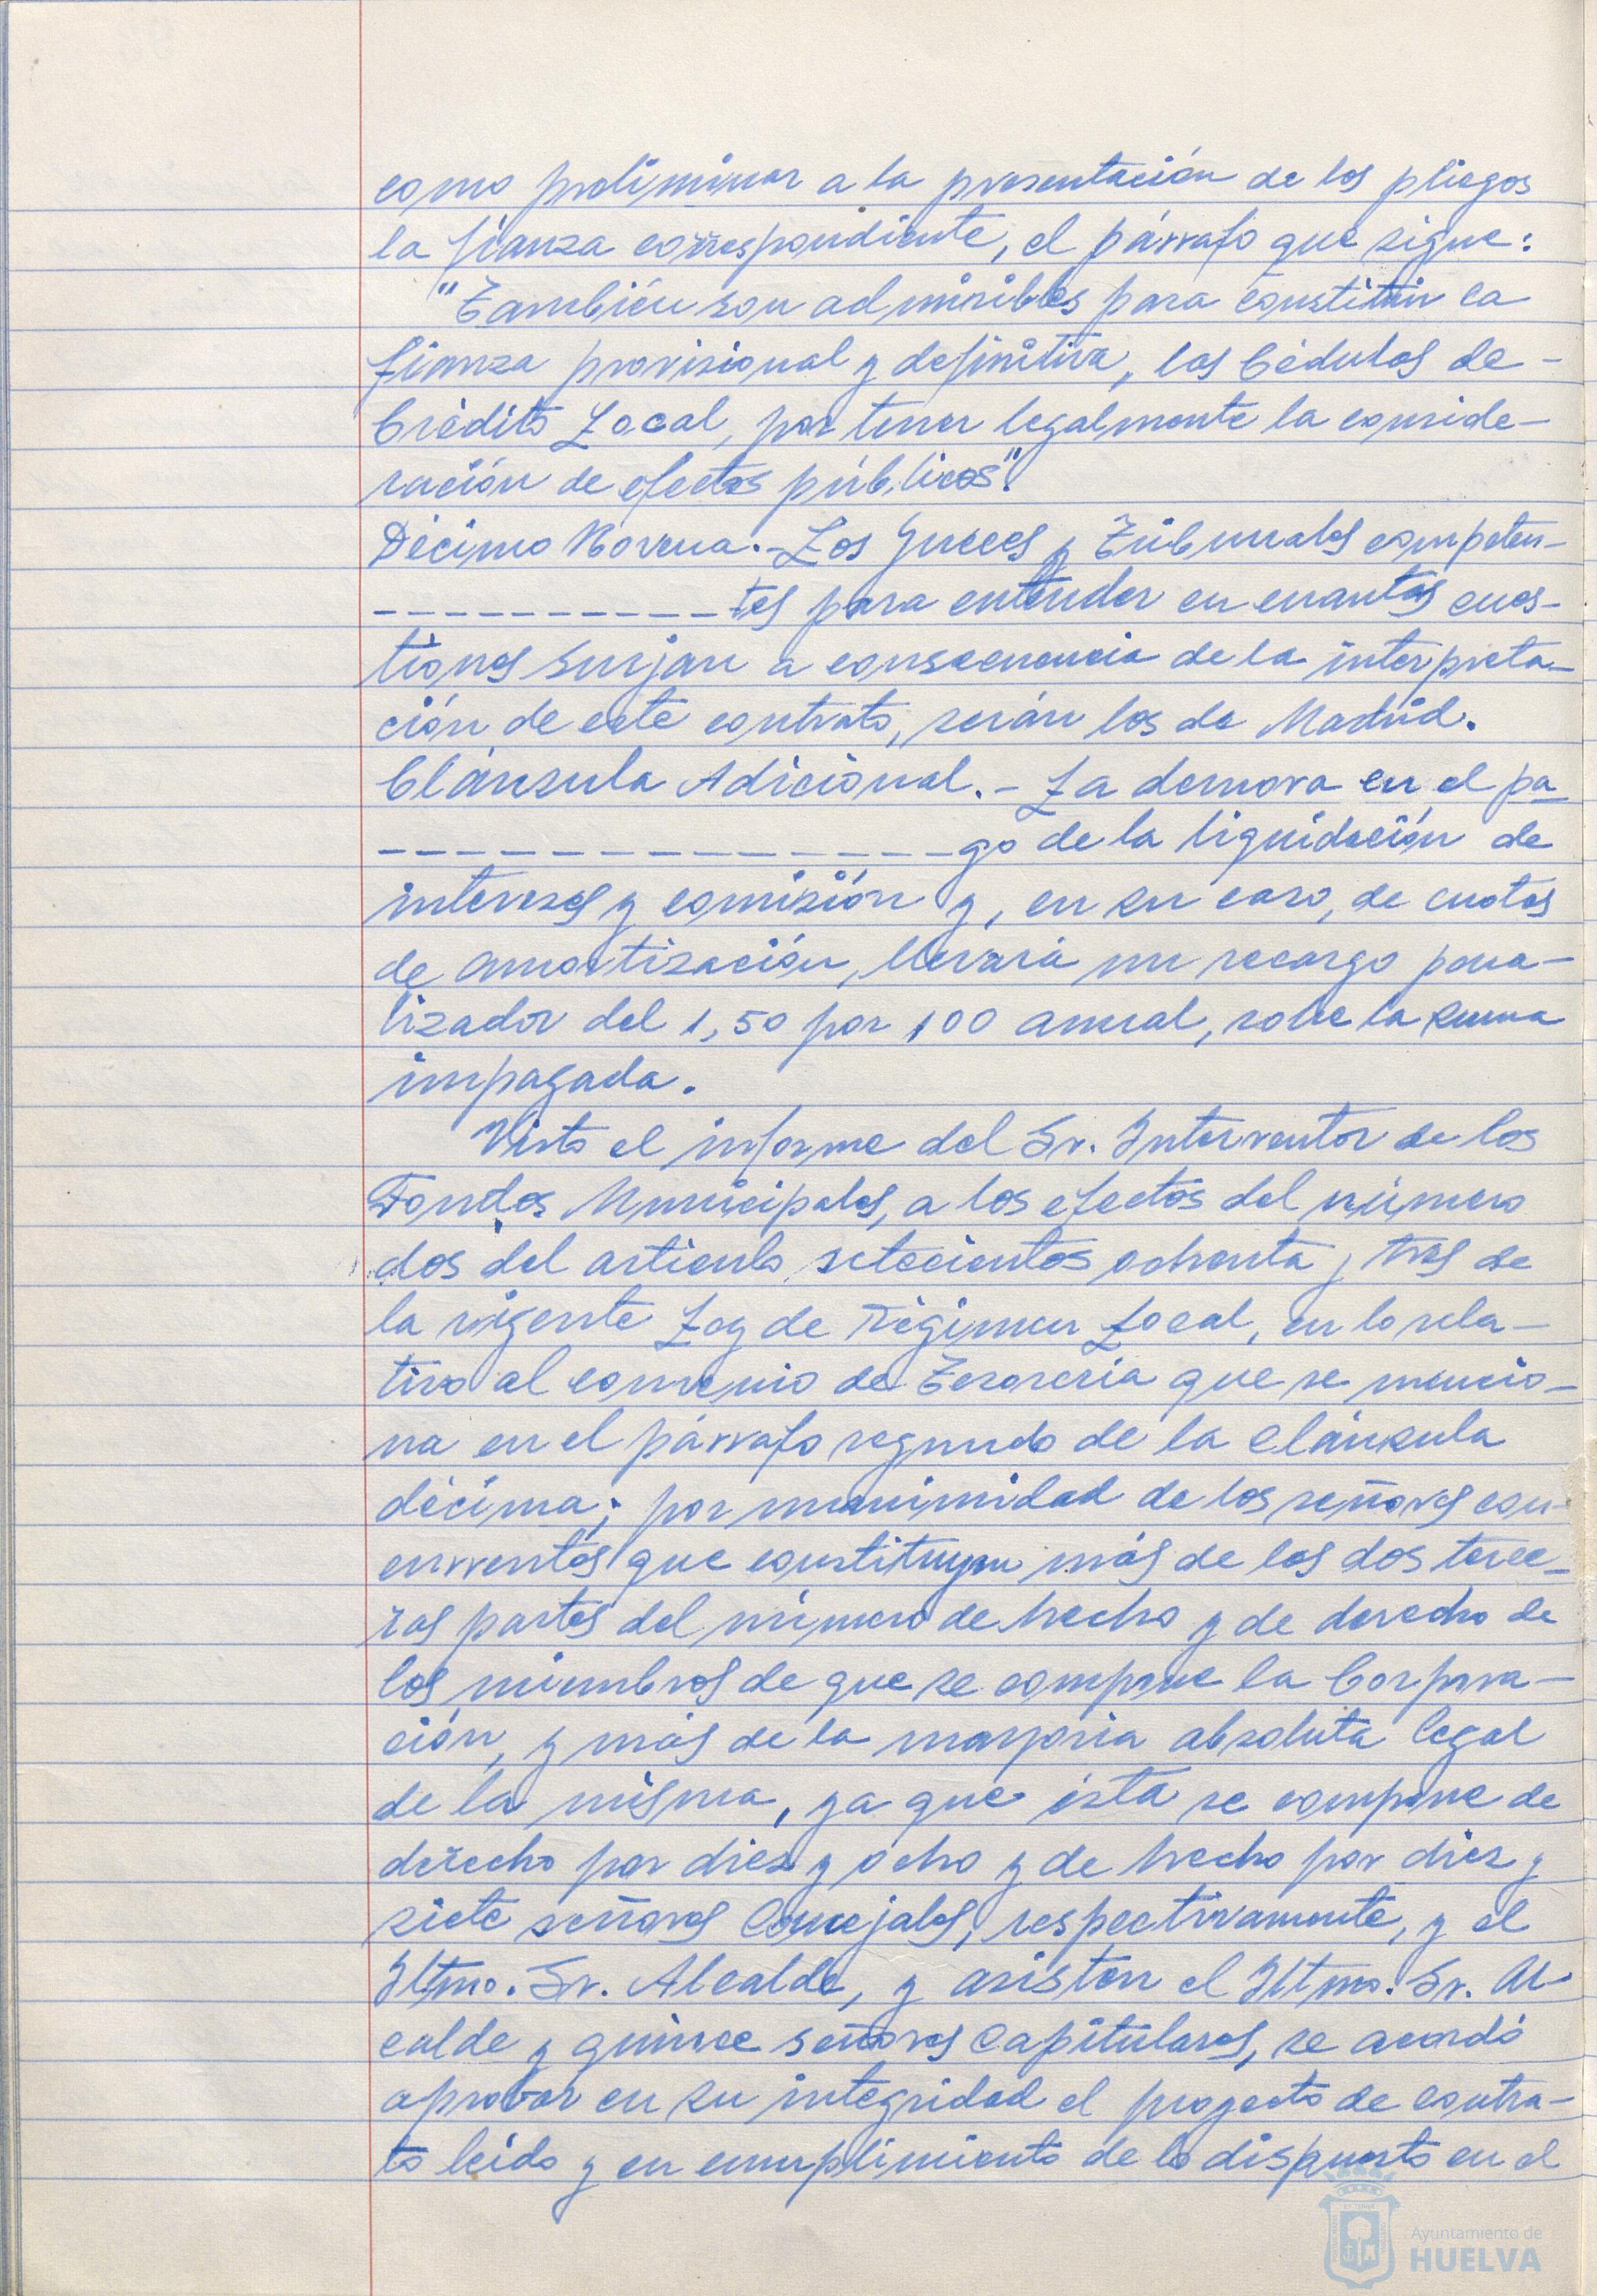 como preliminar a la presentación de los pliegos
la fianza correspondiente, el párrafo que sigue:
"También son admisibles para constituir la
fianza provisional y definitiva, las Cédulas de-
Crédito Local, por tener legalmente la conside-
ración de efectos públicos".
Décimo Novena.- Los Jueces y Tribunales competen-
-----------tes para entender en cuantas cues-
tiones surjan a consecuencia de la interpreta-
ción de este contrato, serán los de Madrid.
Cláusula Adicional.- La demora en el pa-
------------------go de la liquidación de
intereses y comisión y, en su caso, de cuotas
de amortización, llevará un recargo pena-
lizador del 1,50 por 100 anual, sobre la suma
impagada.
Visto el informe del Sr. Interventor de los
Fondos Municipales, a los efectos del número
dos del artículo setecientos ochenta y tres de
la vigente Ley de Régimen Local, en lo rela-
tivo al convenio de Tesorería que se mencio-
na en el párrafo segundo de la cláusula
décima; por unanimidad de los señores con-
currentes que constituyen más de las dos terce-
ras partes del número de hecho y de derecho de
los miembros de que se compone la Corpora-
ción, y más de la mayoria absoluta legal
de la misma, ya que ésta se compone de
derecho por diez y ocho y de hecho por diez y
siete señores Concejales, respectivamente, y el
Iltmo. Sr. Alcalde, y asisten el Iltmo. Sr. Al-
calde y quince señores Capitulares, se acordó
aprobar en su integridad el proyecto de contra-
to leído y en cumplimiento de lo dispuesto en el
Ayuntamiento de
HUELVA